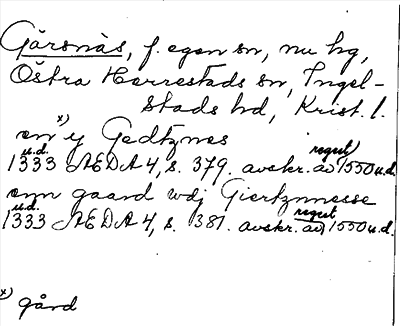 Gärsnäs, f. egen sn, nu hg,
Östra Herrestads sn, Ingel-
stads hd, Krist. l.
em x) y Gedtznes
u.d. regest)
1333 ÆDA 4, s. 379. avskr. av 1550 u.d.
enn gaard wdj Giertznnesse
u.d. regest
1333 ÆDA 4, s. 381. avskr. av) 1550 u.d.
x) gård